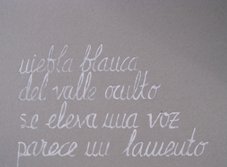 niebla blanca
del valle oculto
se eleva una voz
parece un lamento